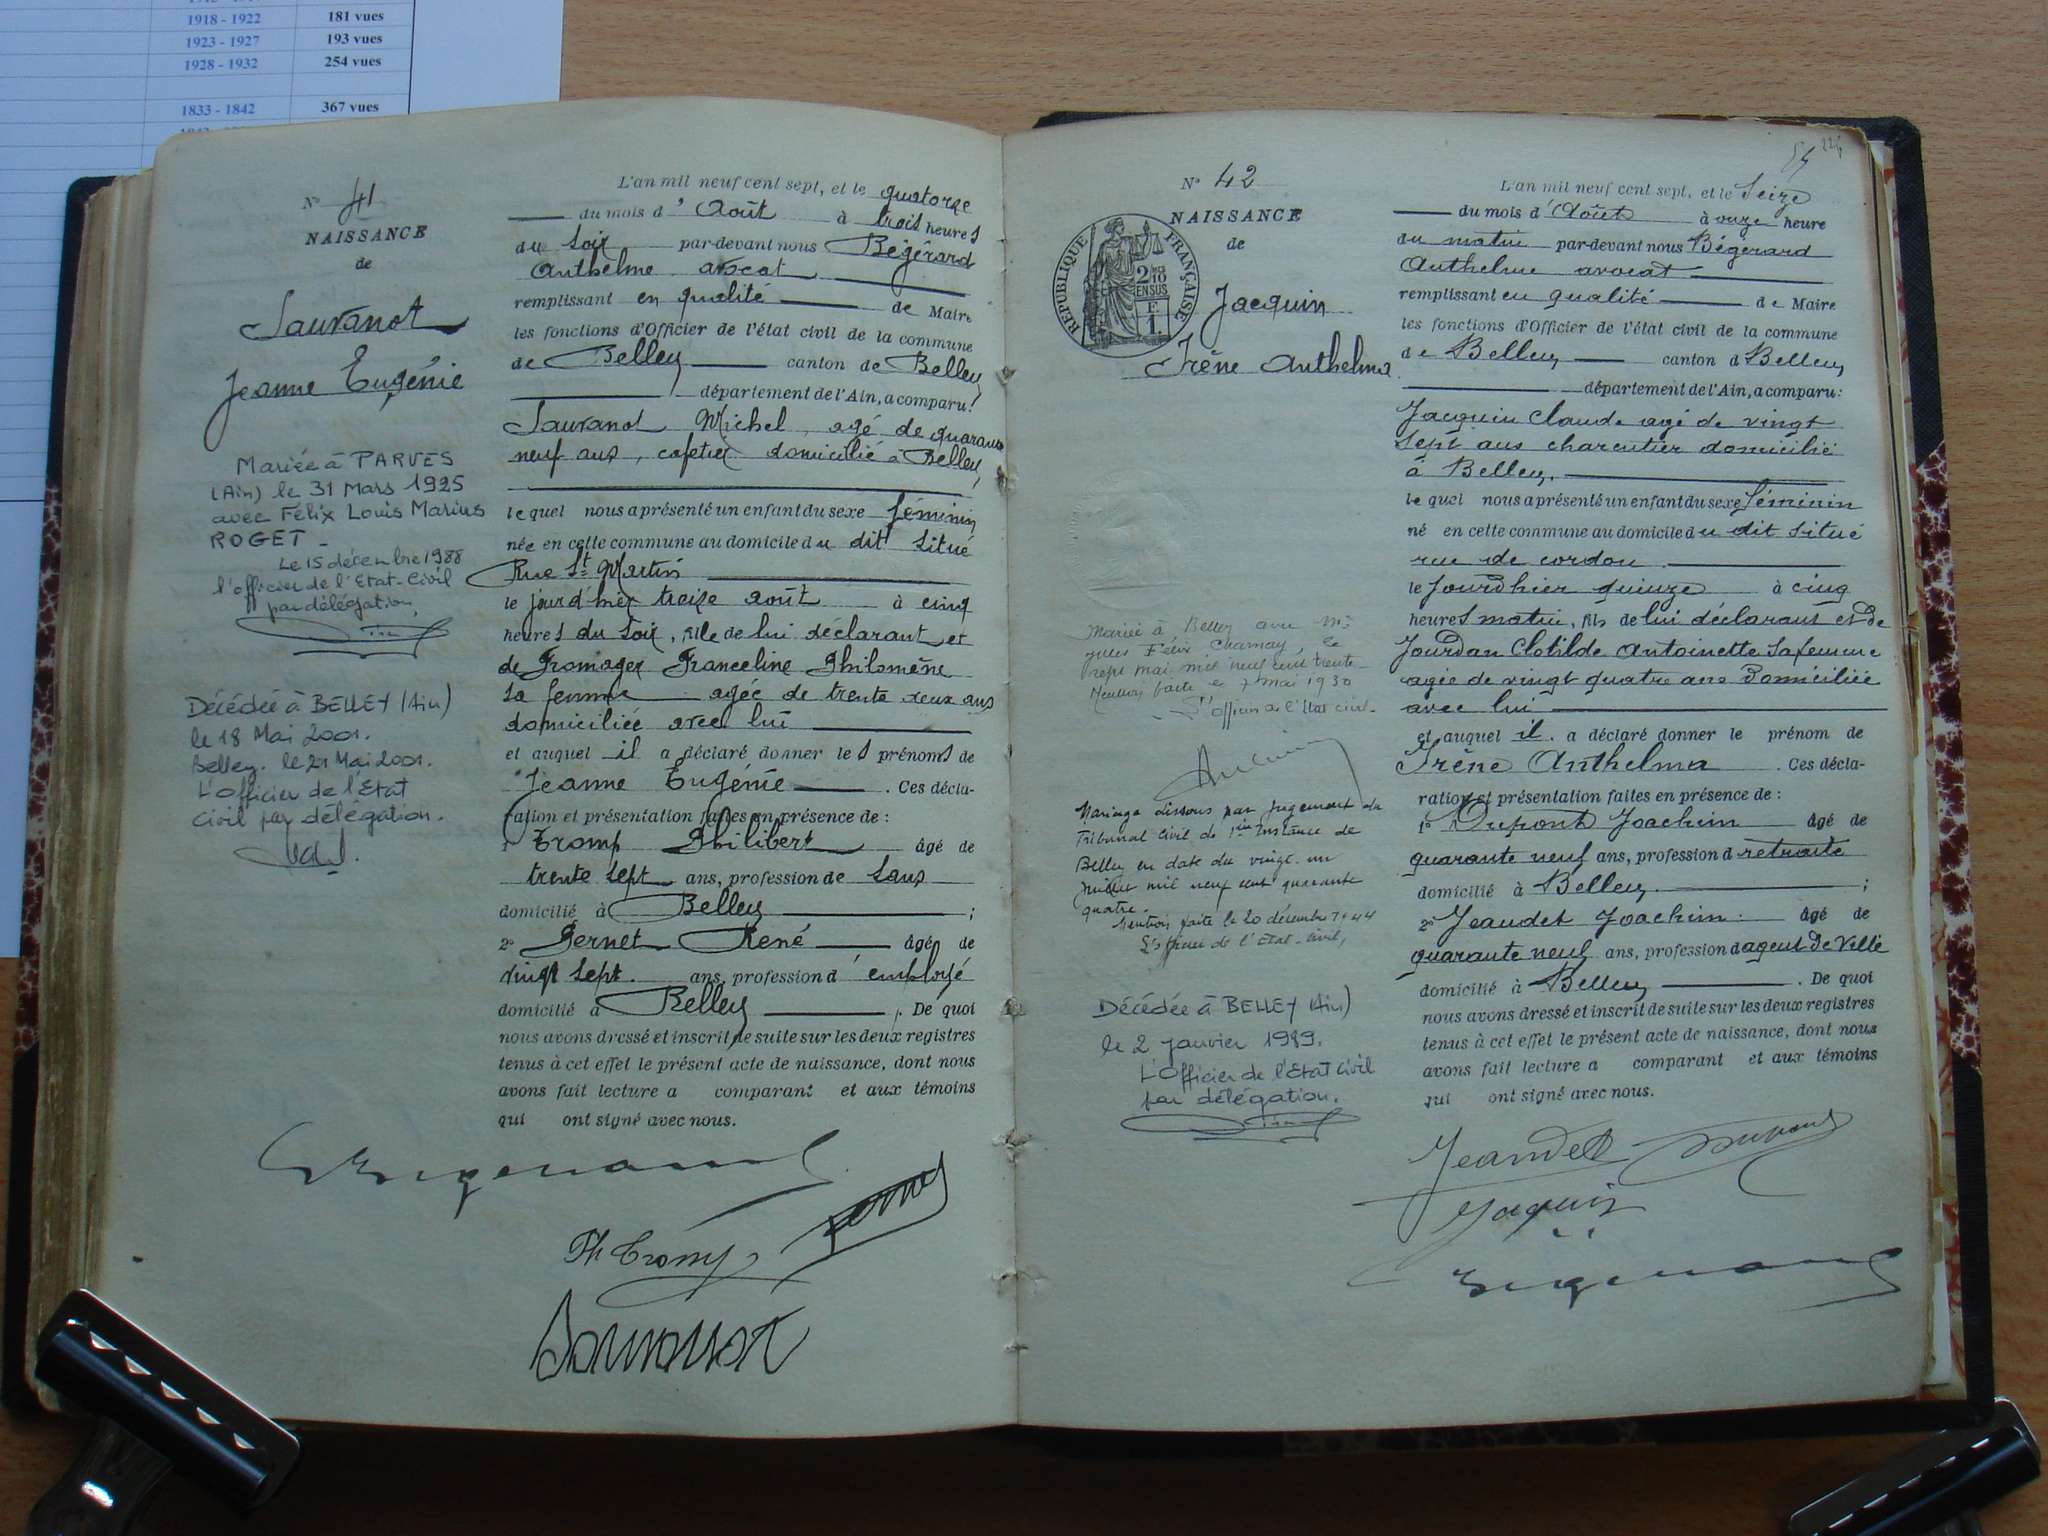 1918 - 1922 181 vues
1923 - 1927 193 vues
1928 - 1932 254 vues
1833 - 1842 367 vues
N° 41
NAISSANCE
de
Sauvanot
Jeanne Eugénie
Mariée à PARVES
(Ain) le 31 Mars 1925
avec Félix Louis Marius
ROGET _
Le 15 décembre 1988
l'officier de l'Etat-Civil
par délégation,
Décédée à BELLEY (Ain)
le 18 Mai 2001.
Belley. le 21 Mai 2001.
L'Officier de l'Etat
Civil par délégation.
L'an mil neuf cent sept, et le quatorze
du mois d'Août à trois heures
du soir par-devant nous Bégérard
Anthelme avocat
remplissant en qualité de Maire
les fonctions d'Officier de l'état civil de la commune
de Belley canton de Belley
département de l'Ain, a comparu:
Sauvanot Michel, agé de quarante
neuf ans, cafetier domicilié à Belley,
lequel nous a présenté un enfant du sexe féminin
née en cette commune au domicile du dit situé
Rue St Martin
le jourd'hier treize août à cinq
heures du soir, fille de lui déclarant et
de Fromager Franceline Philomène
sa femme agée de trente deux ans
domiciliée avec lui
et auquel il a déclaré donner les prénoms de
Jeanne Eugénie . Ces décla-
ration et présentation faites en présence de :
1° Tromp Philibert âgé de
trente sept ans, profession de sans
domicilié à Belley ;
2° Pernet René âgé de
vingt sept. ans, profession d'employé
domicilié à Belley . De quoi
nous avons dressé et inscrit de suite sur les deux registres
tenus à cet effet le présent acte de naissance, dont nous
avons fait lecture a comparant et aux témoins
qui ont signé avec nous.
Ph Tromp
Pernet
Sauvanot
54 226
N° 42
NAISSANCE
de
RÉPUBLIQUE FRANÇAISE
Jacquin
Irène Anthelma
Mariée à Belley avec
Jules Félix Charnay, le
sept mai mil neuf cent trente.
Mention faite le 7 mai 1930
L'officier de l'Etat civil.
Mariage dissous par jugement du
Tribunal Civil de 1ère Instance de
Belley en date du vingt un
juillet mil neuf cent quarante
quatre.
Mention faite le 20 décembre 1944
L'officier de l'Etat-Civil,
Décédée à BELLEY (Ain)
le 2 janvier 1989.
L'Officier de l'Etat Civil
par délégation.
L'an mil neuf cent sept, et le Seize
du mois d'Août à onze heure
du matin par-devant nous Bégérard
Anthelme avocat
remplissant en qualité de Maire
les fonctions d'Officier de l'état civil de la commune
de Belley canton d Belley
département de l'Ain, a comparu:
Jacquin Claude agé de vingt
sept ans charcutier domicilié
à Belley,
lequel nous a présenté un enfant du sexe féminin
né en cette commune au domicile du dit situé
rue de cordon
le jourdhier quinze à cinq
heures matin, fils de lui déclarant et de
Jourdan Clotilde Antoinette sa femme
agée de vingt quatre ans Domiciliée
avec lui
et auquel il a déclaré donner le prénom de
Irène Anthelma . Ces décla-
ration et présentation faites en présence de :
1° Dupont Joachim âgé de
quarante neuf ans, profession d retraité
domicilié à Belley ;
2° Jeandet Joachim âgé de
quarante neuf ans, profession d agent de Ville
domicilié à Belley . De quoi
nous avons dressé et inscrit de suite sur les deux registres
tenus à cet effet le présent acte de naissance, dont nous
avons fait lecture a comparant et aux témoins
qui ont signé avec nous.
Jeandet Dupont
Jaquin